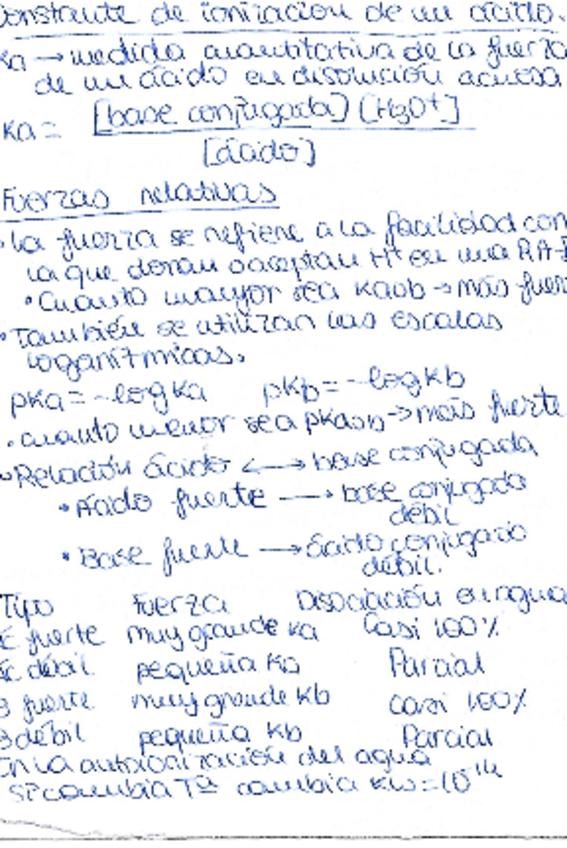 Constante de ionización de un ácido.
Ka → medida cuantitativa de la fuerza
de un ácido en disolución acuosa
Ka = [base conjugada] [H₃O⁺]
[ácido]
Fuerzas relativas
• La fuerza se refiere a la facilidad con
la que donan o aceptan H⁺ en una RA-B
• Cuanto mayor sea Ka o b → más fuerte
• También se utilizan las escalas
logarítmicas.
pKa = -log Ka pKb = -log Kb
• cuanto menor sea pKa o b -> más fuerte
Relación ácido ←→ base conjugada
• Ácido fuerte → base conjugada
débil
• Base fuerte → ácido conjugado
débil.
Tipo Fuerza Disociación en agua
Ác fuerte muy grande Ka Casi 100%
Ác débil pequeña Ka Parcial
B fuerte muy grande Kb Casi 100%
B débil pequeña Kb Parcial
En la autoionización del agua
si cambia Tª cambia Kw = 10⁻¹⁴